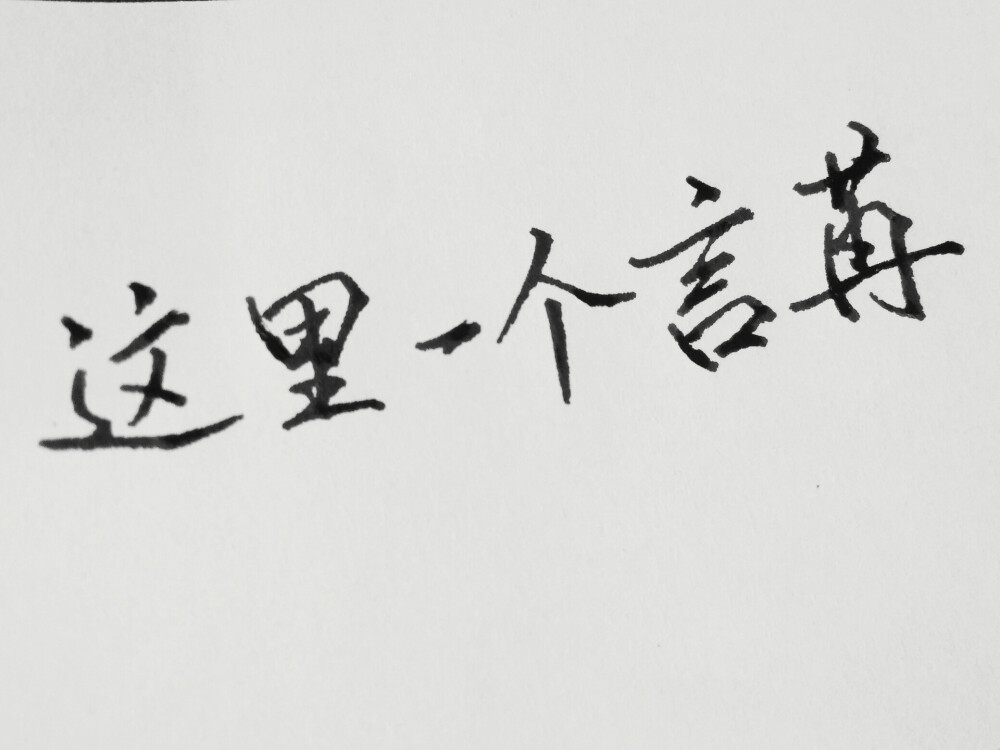 这里一个言苒